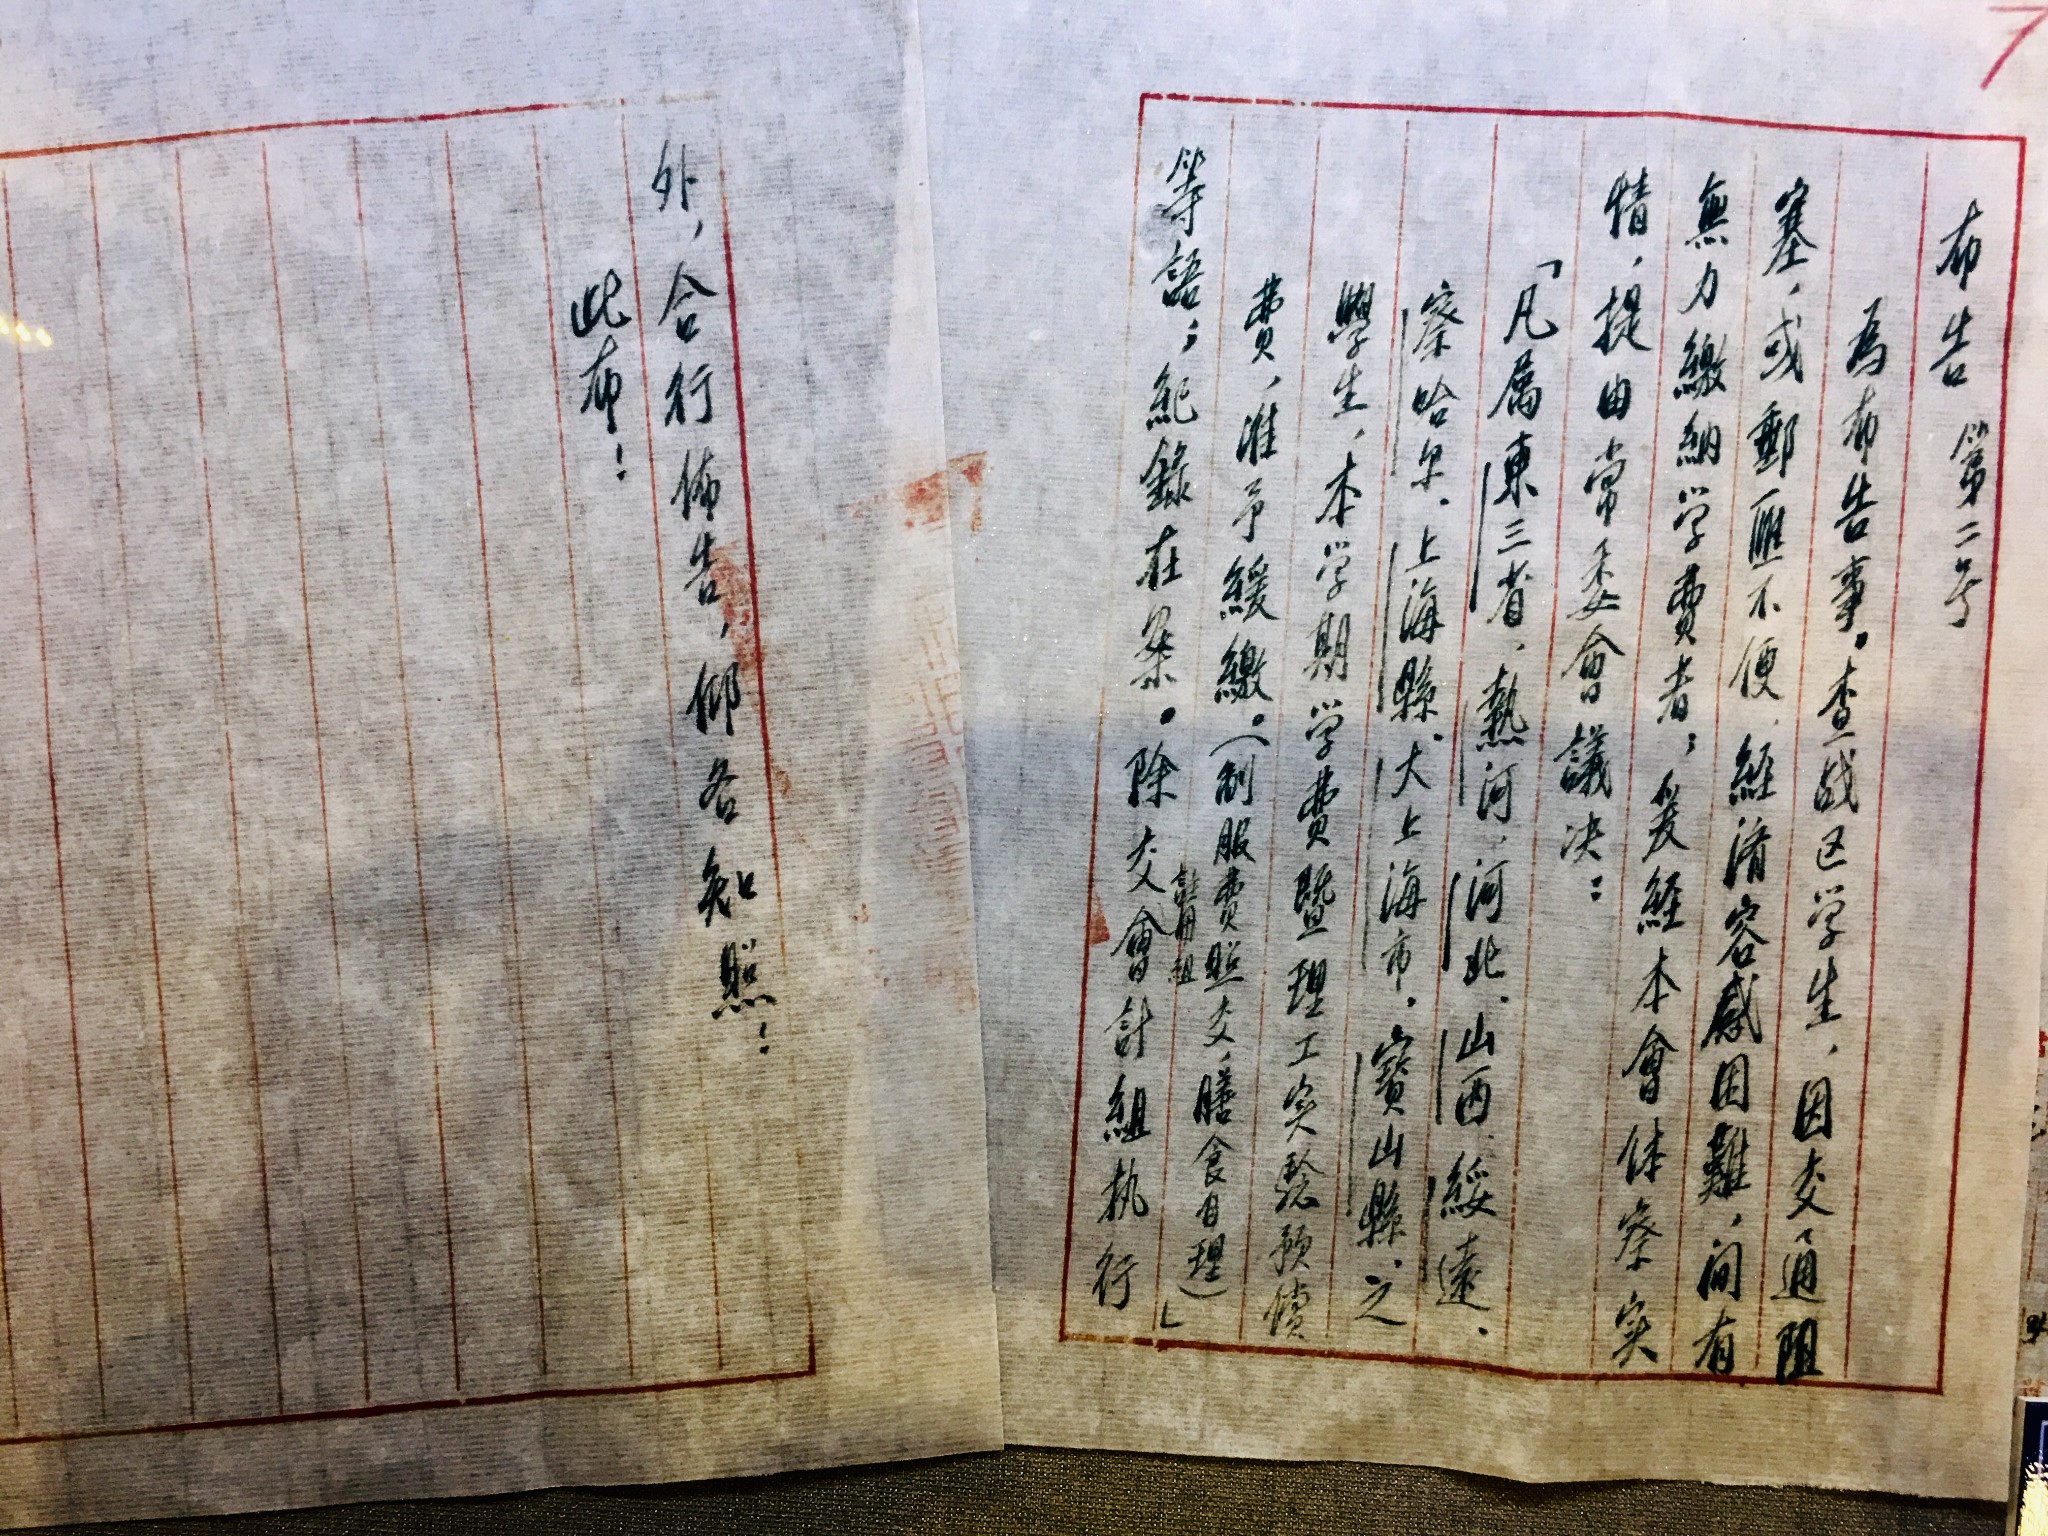 7
布告　第二号
為布告事。查战区学生，因交通阻
塞，或郵匯不便，經済容感困難，间有
無力繳纳学费者，爰经本會体察实
情，提由常委會議决：
「凡属東三省、熱河、河北、山西、綏遠、
察哈尔、上海縣、大上海市，寳山縣、之
學生，本学期学费暨理工实驗预償
费，准予緩繳。（制服费照交，膳食自理）」
等語；紀錄在案。除交會計組执行
外，合行佈告，仰各知照！
此布！